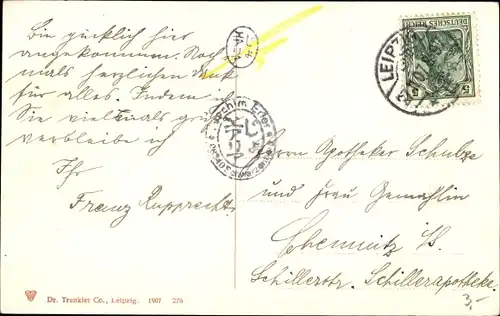 Bin glücklich hier
angekommen. Noch
mals herzlichen Dank
für alles. Indem ich
Sie vielmals grüße
verbleibe ich
Ihr
Franz Rupprecht
DEUTSCHES REICH
5 5
LEIPZIG
Herrn Apotheker Schulze
und Frau Gemahlin
Chemnitz i/S.
Schillerstr. Schillerapotheke.
3,-
Dr. Trenkler Co., Leipzig. 1907 276